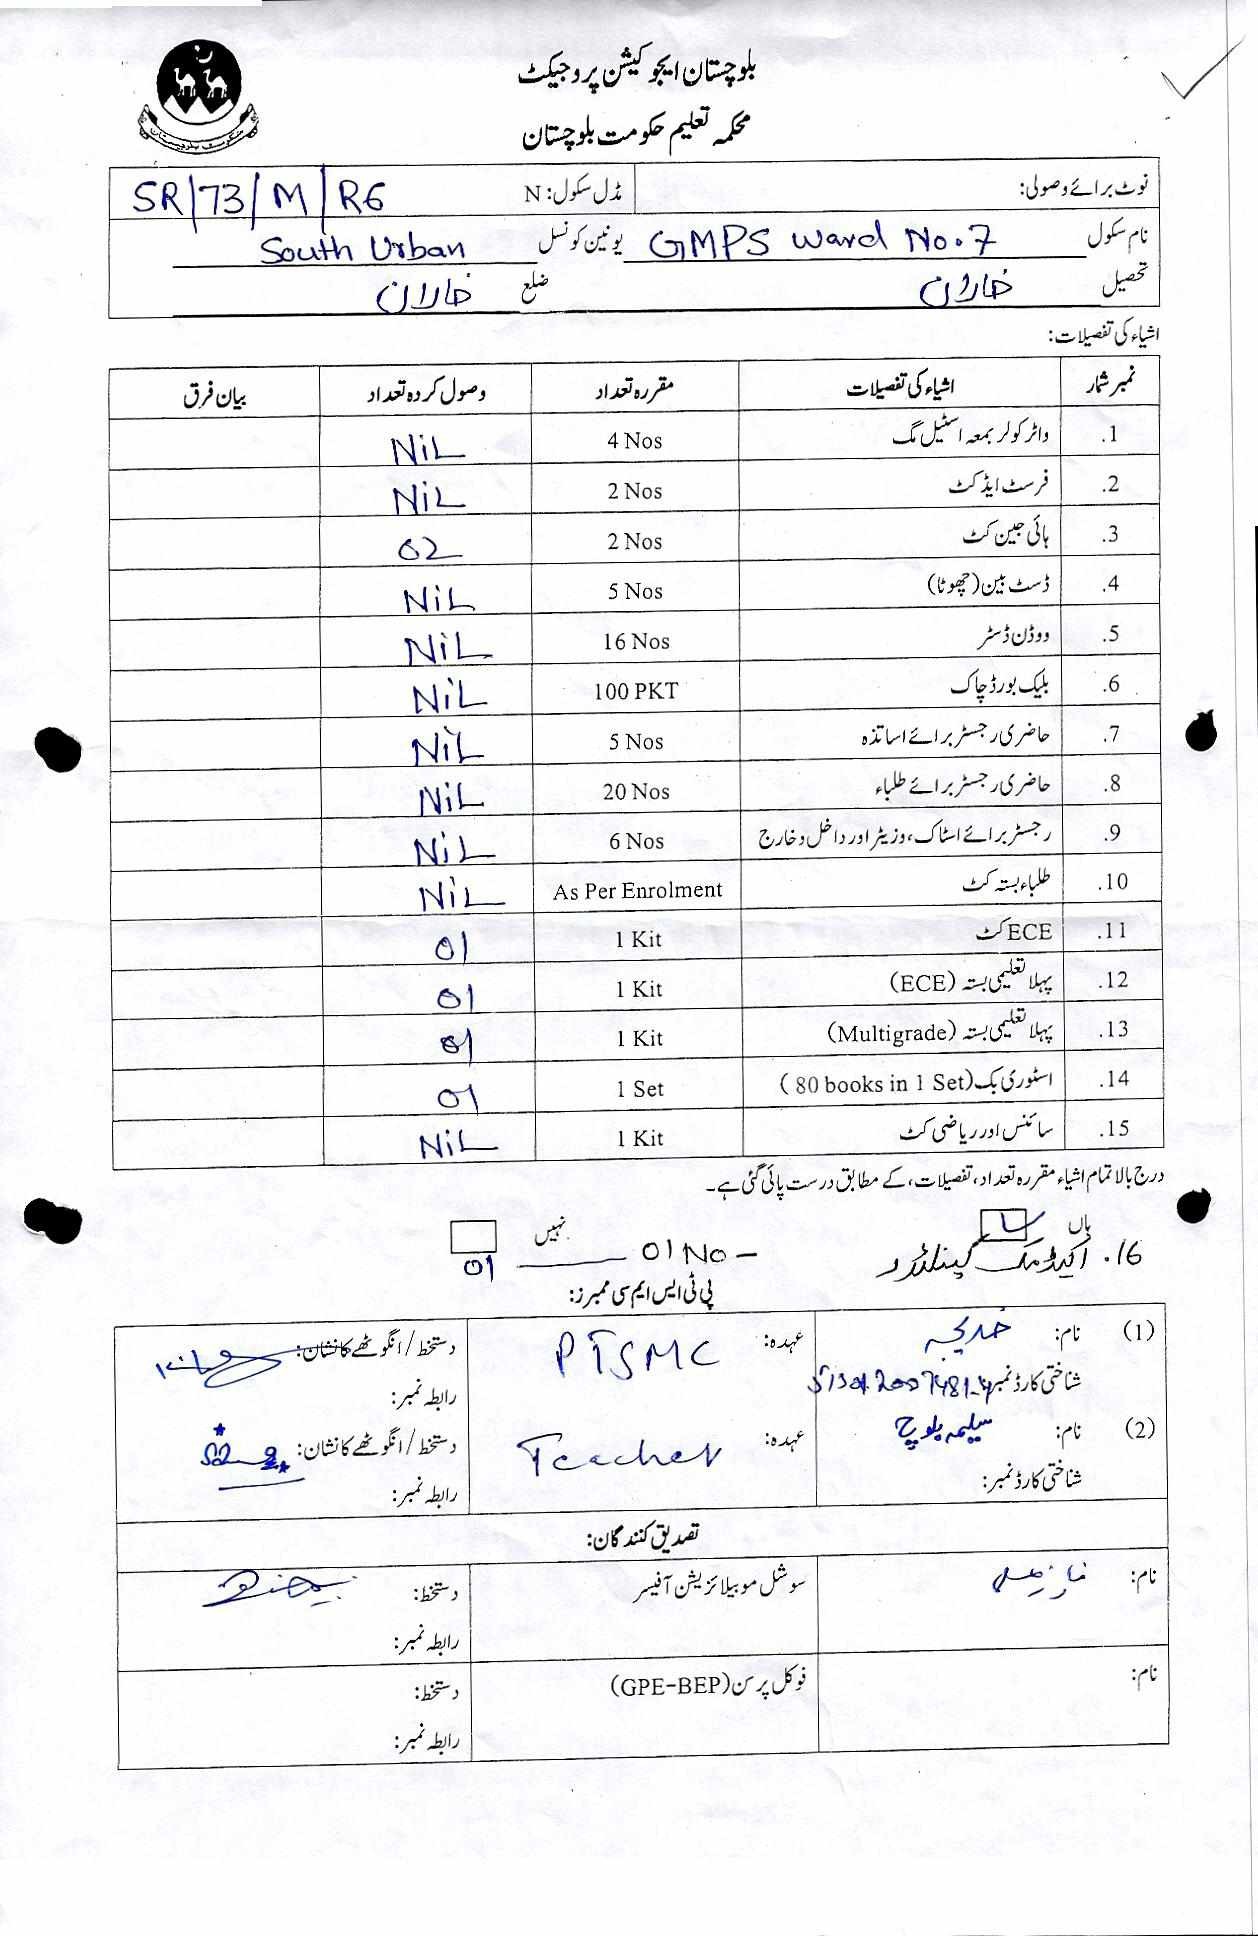 بلوچستان ایجوکیشن پروجیکٹ
محکمہ تعلیم حکومت بلوچستان
نوٹ برائے وصولی: مڈل سکول: N SR/73/M/R6
نام سکول GMPS Ward No.7 یونین کونسل South Urban
تحصیل خاران ضلع خاران
اشیاء کی تفصیلات:
نمبر شمار اشیاء کی تفصیلات مقررہ تعداد وصول کردہ تعداد بیان فرق
1. واٹر کولر بمعہ اسٹیل مگ 4 Nos NiL
2. فرسٹ ایڈ کٹ 2 Nos NiL
3. ہائی جین کٹ 2 Nos 02
4. ڈسٹ بین (چھوٹا) 5 Nos NiL
5. ووڈن ڈسٹر 16 Nos NiL
6. بلیک بورڈ چاک 100 PKT NiL
7. حاضری رجسٹر برائے اساتذہ 5 Nos NiL
8. حاضری رجسٹر برائے طلباء 20 Nos NiL
9. رجسٹر برائے اسٹاک، وزیٹر اور داخل و خارج 6 Nos NiL
10. طلباء بستہ کٹ As Per Enrolment NiL
11. ECE کٹ 1 Kit 01
12. پہلا تعلیمی بستہ (ECE) 1 Kit 01
13. پہلا تعلیمی بستہ (Multigrade) 1 Kit 01
14. اسٹوری بک (80 books in 1 Set) 1 Set 01
15. سائنس اور ریاضی کٹ 1 Kit NiL
درج بالا تمام اشیاء مقررہ تعداد، تفصیلات، کے مطابق درست پائی گئی ہے۔
ہاں نہیں
16. اکیڈمک کیلنڈر 01 No - 01
پی ٹی ایس ایم سی ممبرز:
(1) نام: خدیجہ عہدہ: PTSMC دستخط/انگوٹھے کا نشان:
شناختی کارڈ نمبر رابطہ نمبر:
(2) نام: سلیمہ بلوچ عہدہ: Teacher دستخط/انگوٹھے کا نشان:
شناختی کارڈ نمبر: رابطہ نمبر:
تصدیق کنندگان:
نام: سوشل موبیلائزیشن آفیسر دستخط:
رابطہ نمبر:
نام: فوکل پرسن (GPE-BEP) دستخط:
رابطہ نمبر: